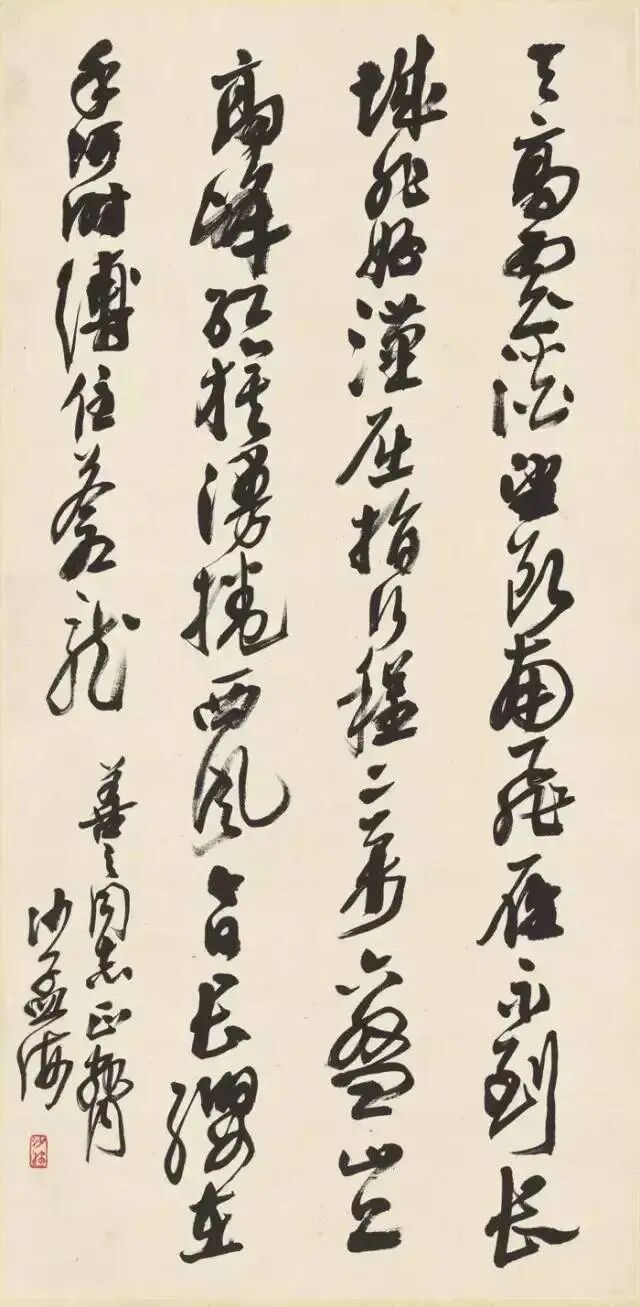 天高雲淡望断南飛雁不到长
城非好漢屈指行程二萬六盤山上
高峰红旗漫捲西風今日长纓在
手何时縛住蒼龍
善之同志正腕
沙孟海